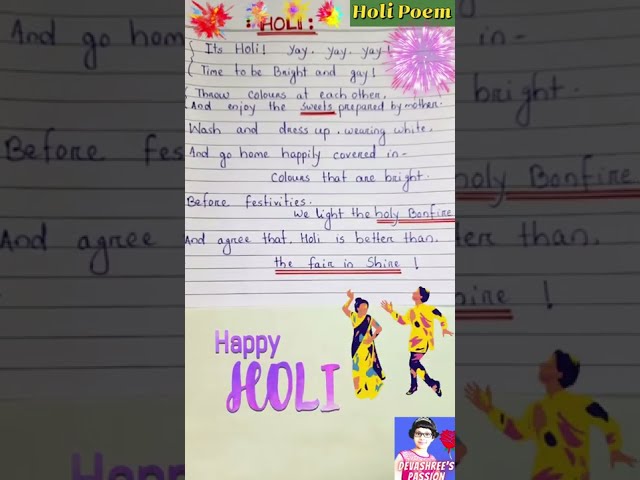 Holi Poem
: HOLI :
Its Holi! Yay, yay, yay!
Time to be Bright and gay!
Throw colours at each other,
And enjoy the sweets prepared by mother.
Wash and dress up, wearing white,
And go home happily covered in-
colours that are bright.
Before festivities,
we light the holy Bonfire
And agree that, Holi is better than,
the fair in Shire !
Happy
HOLI
DEVASHREE'S
PASSION
And go hom
in-
bright.
Before fes
holy Bonfire
And agree
ter than,
ire !
Happy